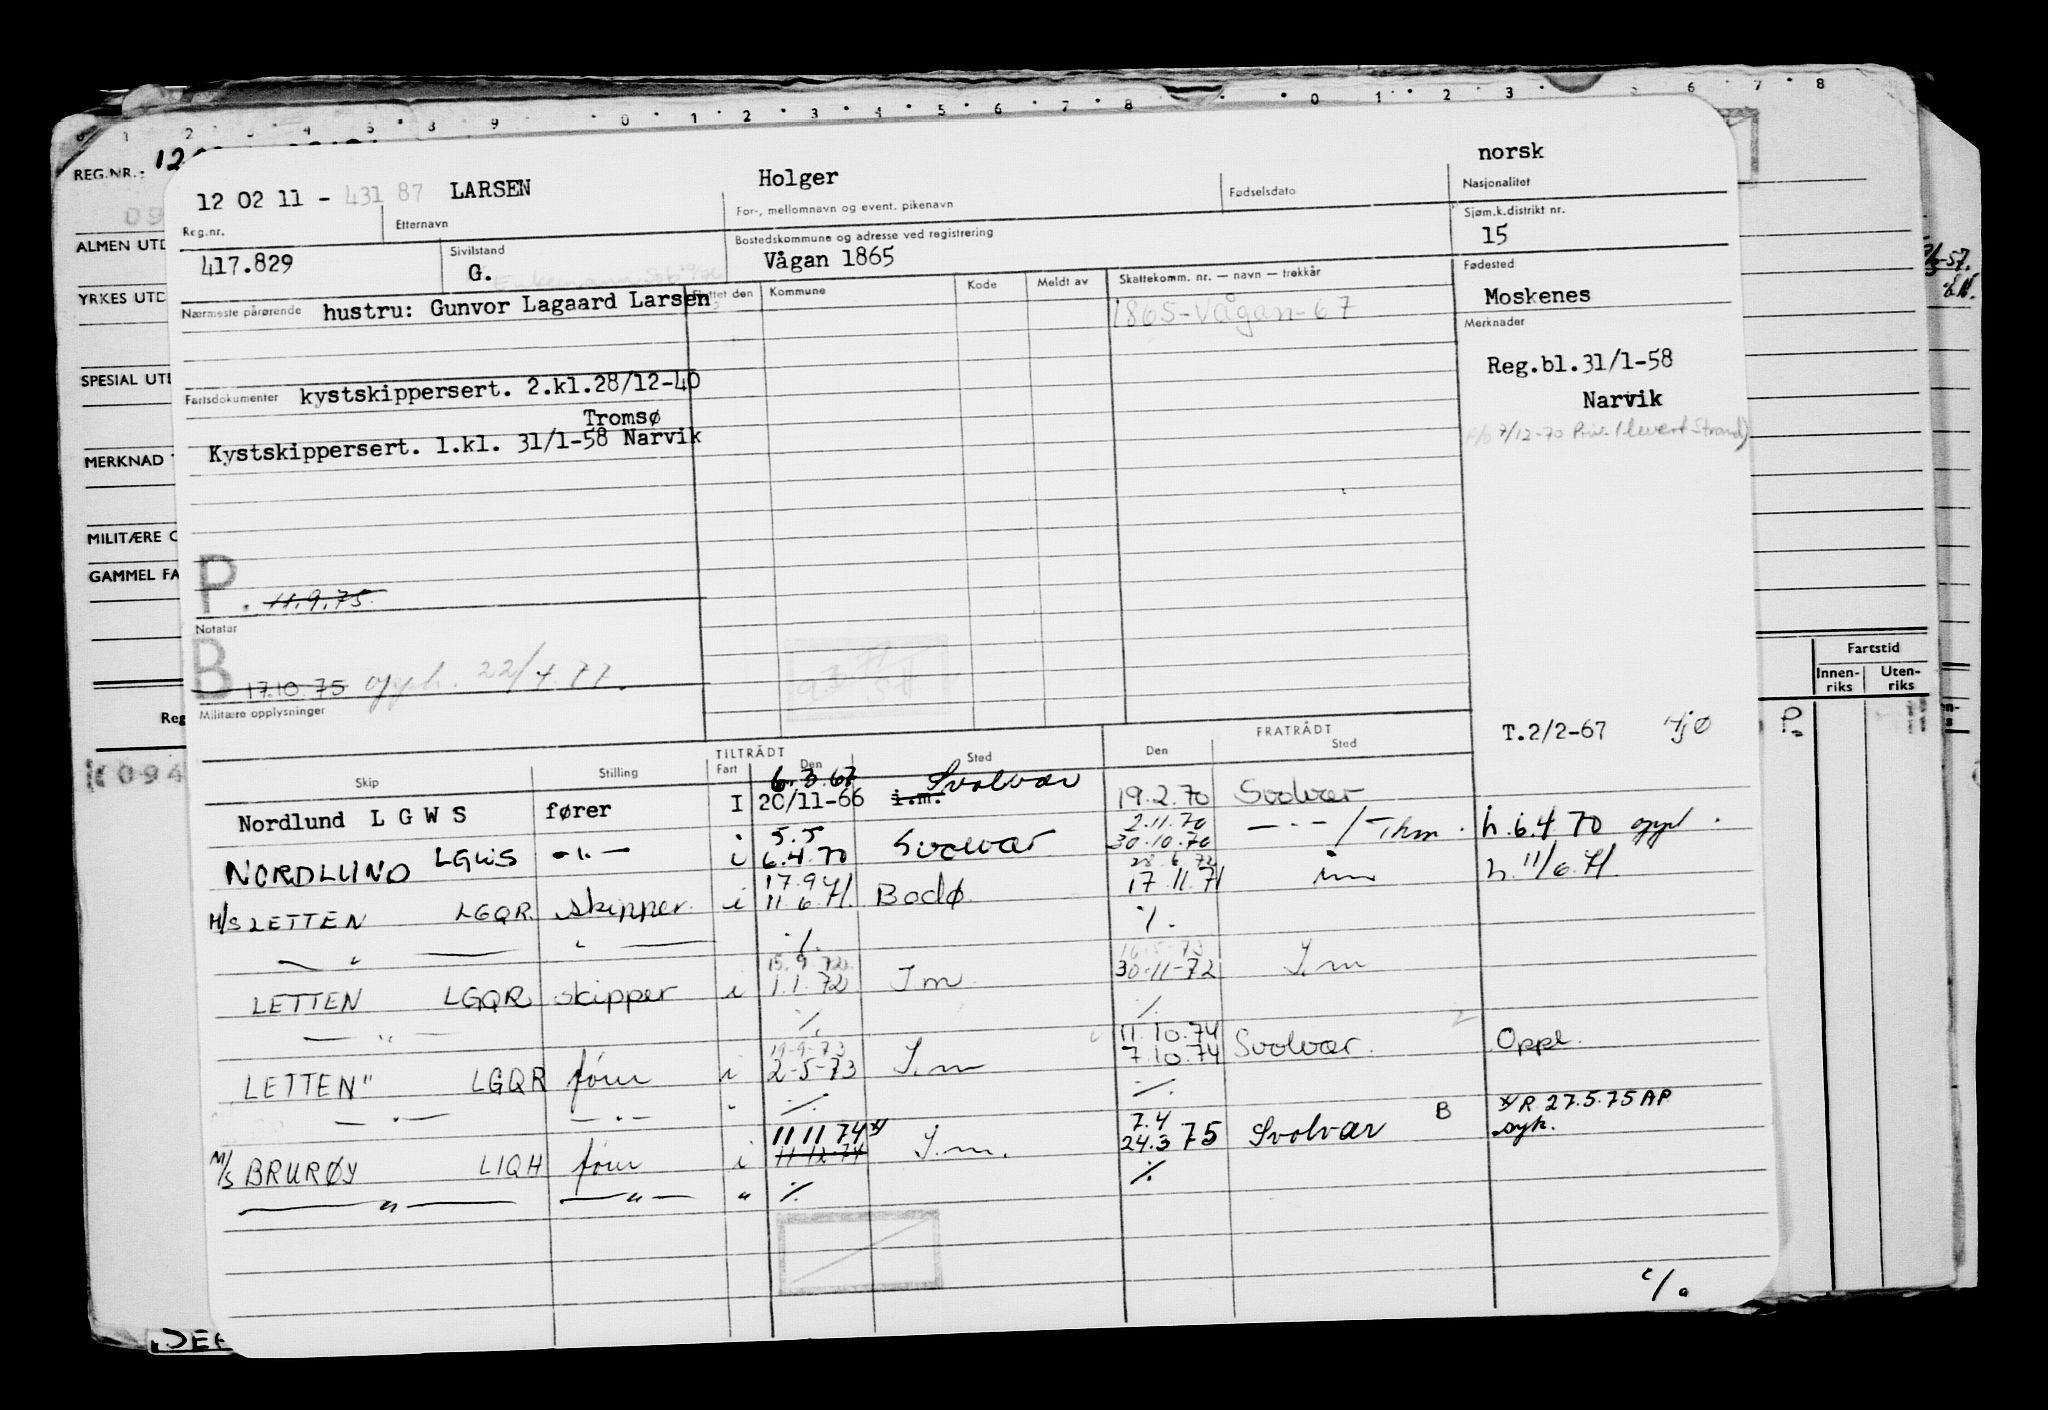 REG.NR.
norsk
Holger
12 02 11 - 431 87 LARSEN
Reg.nr. Etternavn For-, mellomnavn og event. pikenavn Fødselsdato Nasjonalitet
Sjøm.k.distrikt nr.
15
417.829 Sivilstand G. Bostedskommune og adresse ved registrering
Vågan 1865
Fødested
Moskenes
Nærmeste pårørende hustru: Gunvor Lagaard Larsen
Flyttet den Kommune Kode Meldt av Skattekomm. nr. — navn — trekkår
1865-Vågan-67
Merknader
Reg.bl.31/1-58
Narvik
Fartsdokumenter kystskippersert. 2.kl.28/12-40
Tromsø
Kystskippersert. 1.kl. 31/1-58 Narvik
P. 11.9.75
Notater
B 17.10.75 opph. 22/4.77.
Militære opplysninger
ALMEN UTD
YRKES UTD
SPESIAL UTD
MERKNAD
MILITÆRE O
GAMMEL FA
Reg
094
Fartstid
Innen-riks Uten-riks
P.
T.2/2-67
TILTRÅDT FRATRÅDT
Skip Stilling Fart Den Sted Den Sted
6.3.67 Svolvær
Nordlund L G W S fører I 20/11-66 i.m. 19.2.70 Svolvær
5.5 2.11.70
NORDLUND LGWS -"- i 6.4.70 Svolvær 30.10.70 -"- / Thm. h. 6.4 70 oppl.
17.9.71 28.6.72
M/S LETTEN LGQR. skipper. i 11.6.71. Bodø 17.11.71 im h. 11/6.71.
— " — " — ./. ./.
15.9.72 16.5-73
LETTEN LGQR skipper i 1.1.72 I m. 30-11-72 I.m
— " — ./. ./.
19-9-73 11.10.74
LETTEN" LGQR fører i 2-5-73 I.m 7.10.74 Svolvær. Oppl.
— " — — " — " ./. ./.
11 11 74 x/ 7.4 B x/ R 27.5.75 AP
M/S BRURØY LIQH fører i 11 12 74 I.m. 24.3 75 Svolvær syk.
— " — — " — " ./. ./.
./.